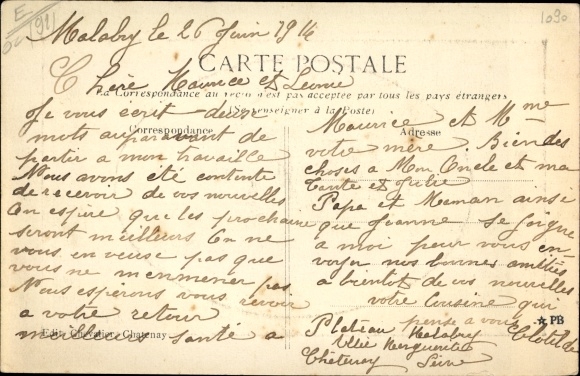 E
91
1090
Malabry le 26 Juin 1914
CARTE POSTALE
Chère Maurice et Leonie
La Correspondance au recto n'est pas acceptée par tous les pays étrangers
(Se renseigner à la Poste)
Correspondance
Je vous écrit deux
mots auparavent de
partir a mon travaille
Nous avons été contente
de recevoir de vos nouvelles
On espire que les prochaine
seront meilleurs On ne
vous en veuse pas que
vous ne m'enmener pas
Nous espérons vous revoir
a votre retour
meilleur santé a
Edit. Chevalier, Chatenay
Adresse
Maurice et Mme
votre mère. Bien des
choses a Mon Oncle et ma
tante et Julie
Papa et Maman ainsi
que Jeanne se joigne
a moi pour vous en-
voyer nos bonnes amitiés
a bientot de vos nouvelles
votre cousine qui
pense a vous
Clotilde
Plateau Malabry
Villa Marguerite
Chatenay Seine
PB